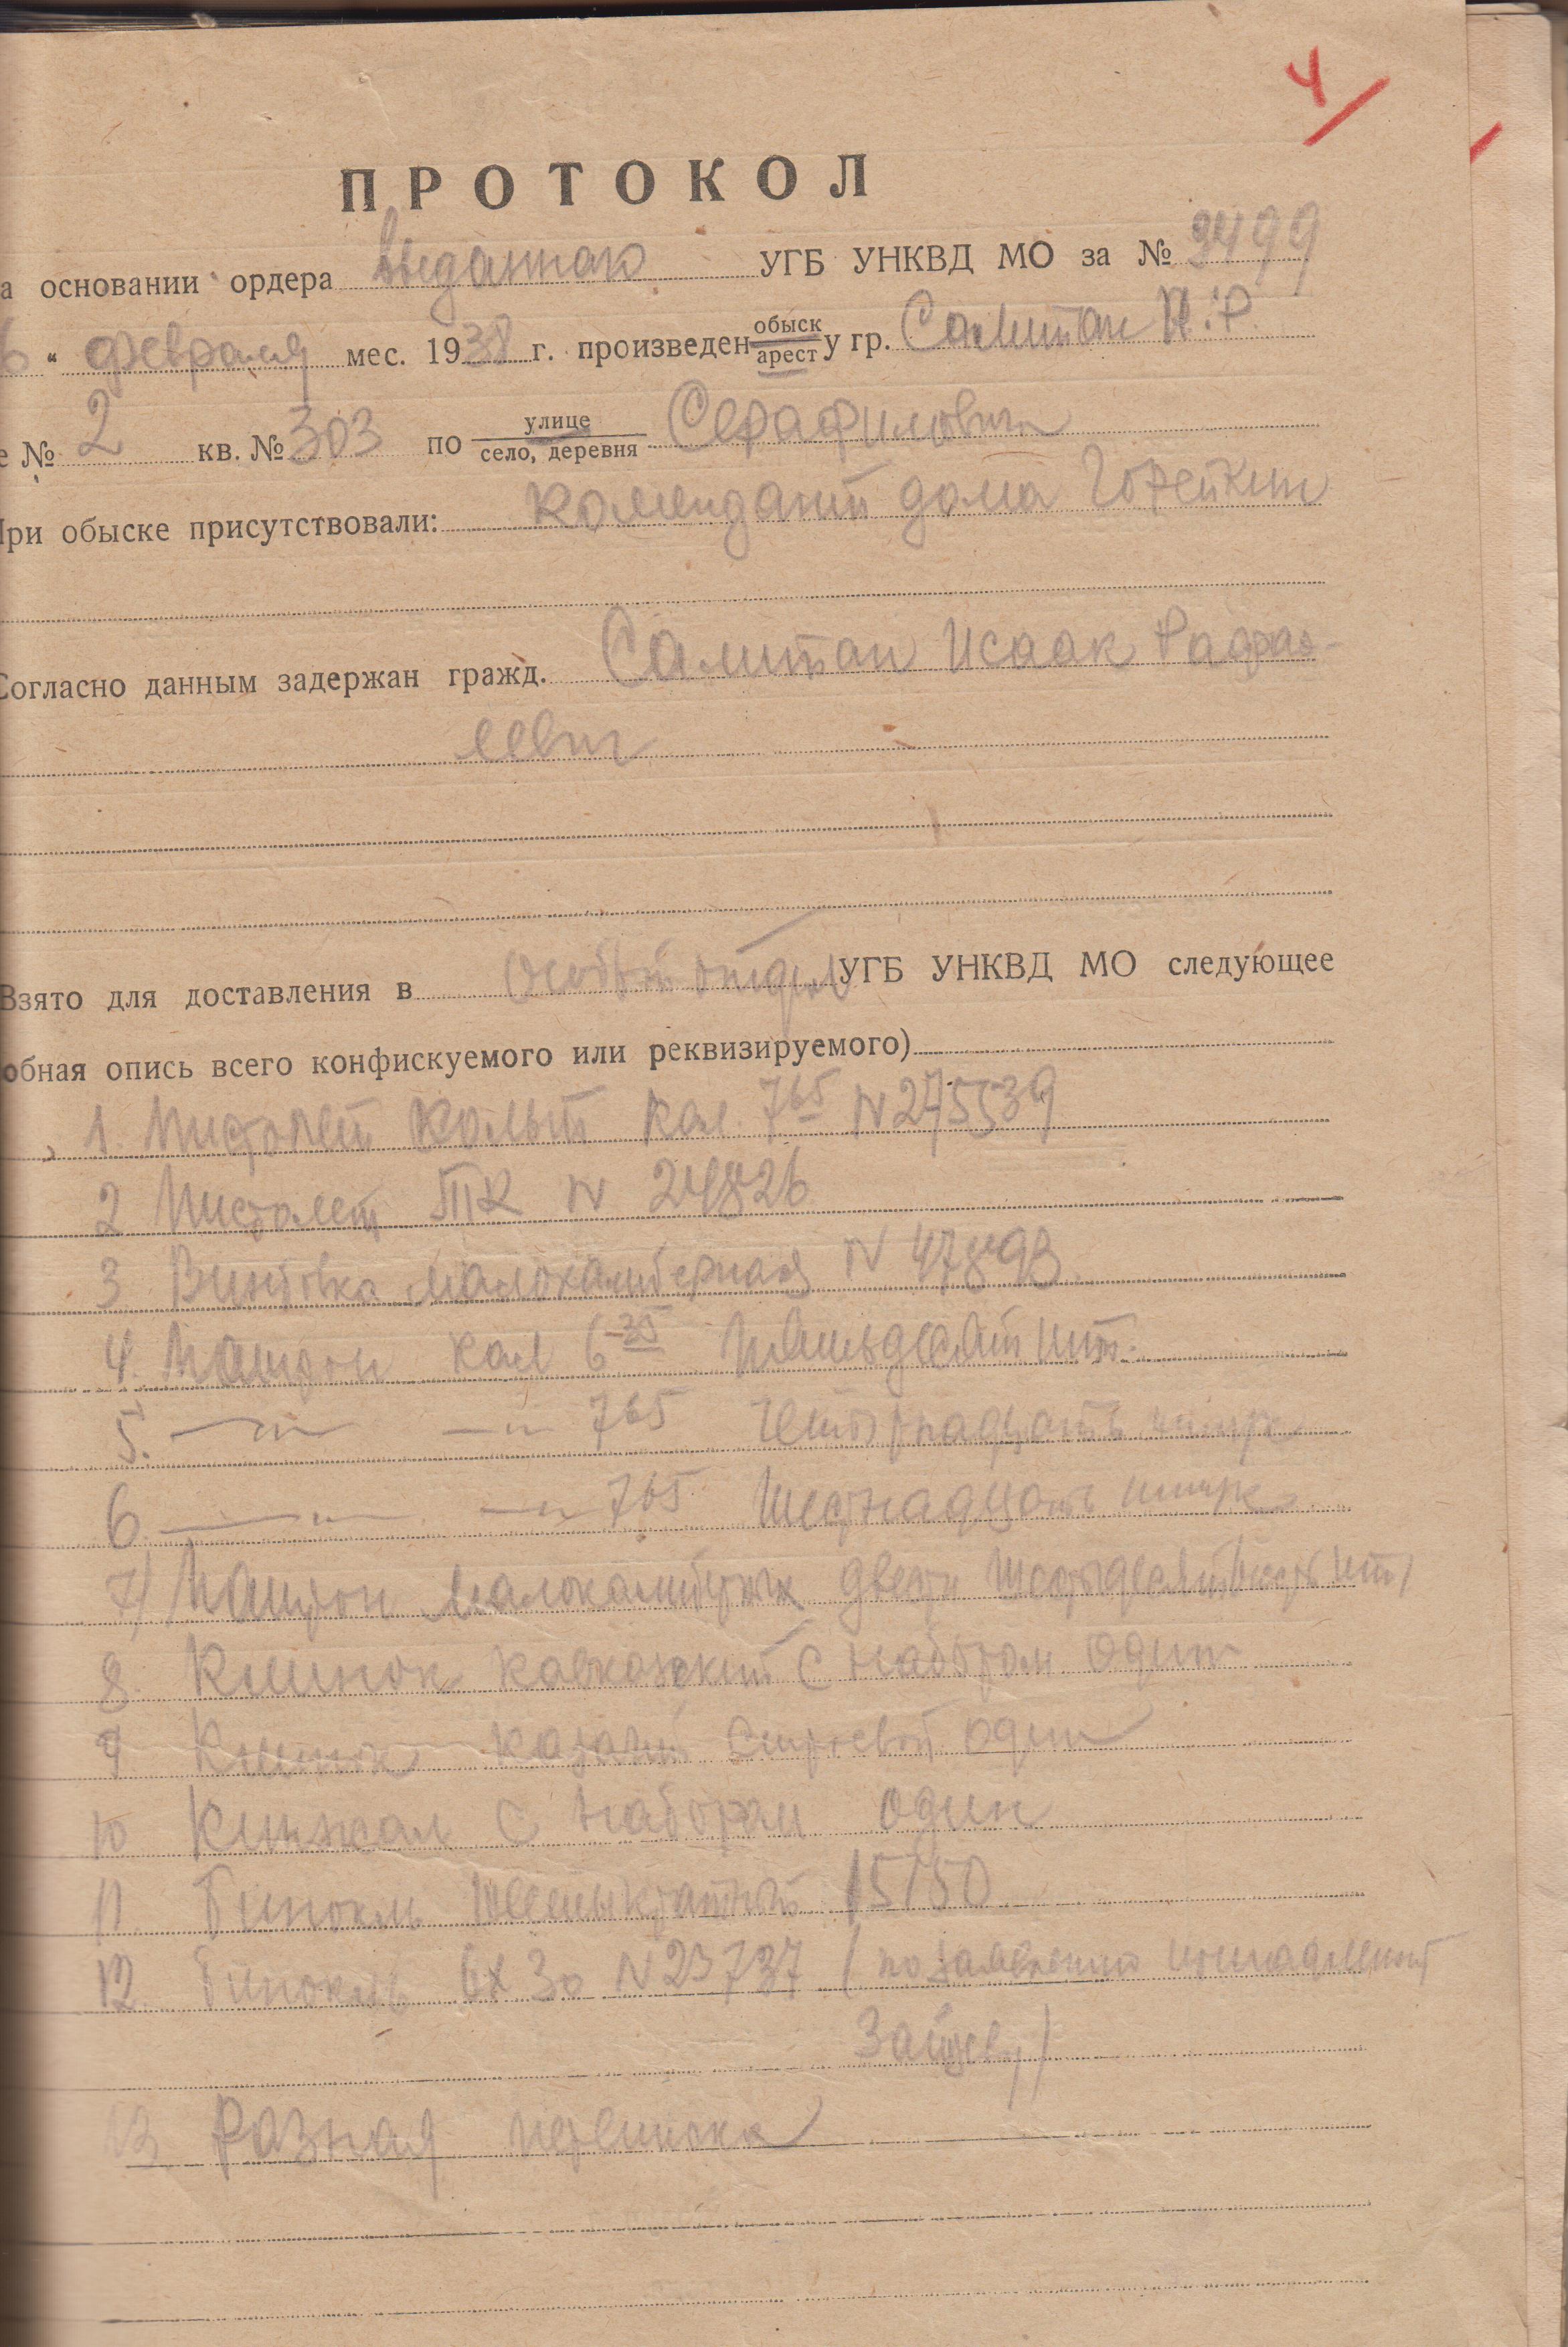 4
ПРОТОКОЛ
а основании ордера выданного УГБ УНКВД МО за № 3499
6 " февраля мес. 1938 г. произведен обыск арест у гр. Солитан И.Р.
е № 2 кв. № 303 по улице село, деревня Серафимовича
При обыске присутствовали: комендант дома
Согласно данным задержан гражд. Солитан Исаак Рафаэ-
левич
Взято для доставления в Особый отдел УГБ УНКВД МО следующее
обная опись всего конфискуемого или реквизируемого)
1. Пистолет Кольт кал. 7 65 N 275539
2 Пистолет ТК N 24826
3 Винтовка малокалиберная N 47898
4. Патрон кал 6 35 шт.
5. — " — — " — 765 четырнадцать штук
6. — " — — " — 765 шестнадцать штук
7) Патрон малокалиберных двести шт/
8. Клинок кавказский с набором один
9 Клинок казачий строевой один
10 Кинжал с набором один
11. Бинокль 15/50
12. Бинокль 6х30 N 23737 / по заявлению принадлежит
Зайцеву /
13 Разная переписка